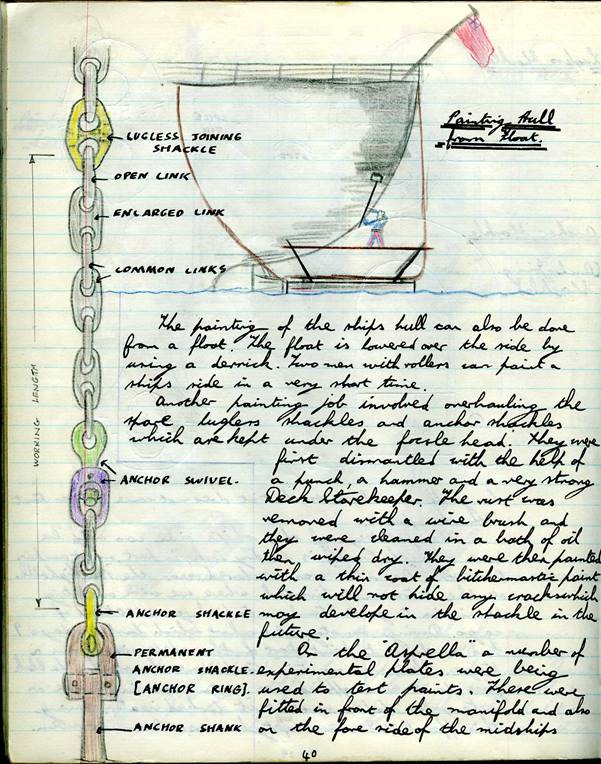 Painting Hull
from Float.
LUGLESS JOINING
SHACKLE
OPEN LINK
ENLARGED LINK
COMMON LINKS
WORKING LENGTH
The painting of the ships hull can also be done
from a float. The float is lowered over the side by
using a derrick. Two men with rollers can paint a
ships side in a very short time.
Another painting job involved overhauling the
spare lugless shackles and anchor shackles
which are kept under the focsle head. They were
first dismantled with the help of
a punch, a hammer and a very strong
Deck Storekeeper. The rust was
removed with a wire brush, and
they were cleaned in a bath of oil
then wiped dry. They were then painted
with a thin coat of bitchermastic paint
which will not hide any cracks which
may develope in the shackle in the
future.
On the "Asprella" a number of
experimental plates were being
used to test paints. These were
fitted in front of the manifold and also
on the fore side of the midships
ANCHOR SWIVEL.
ANCHOR SHACKLE
PERMANENT
ANCHOR SHACKLE.
[ANCHOR RING].
ANCHOR SHANK
40